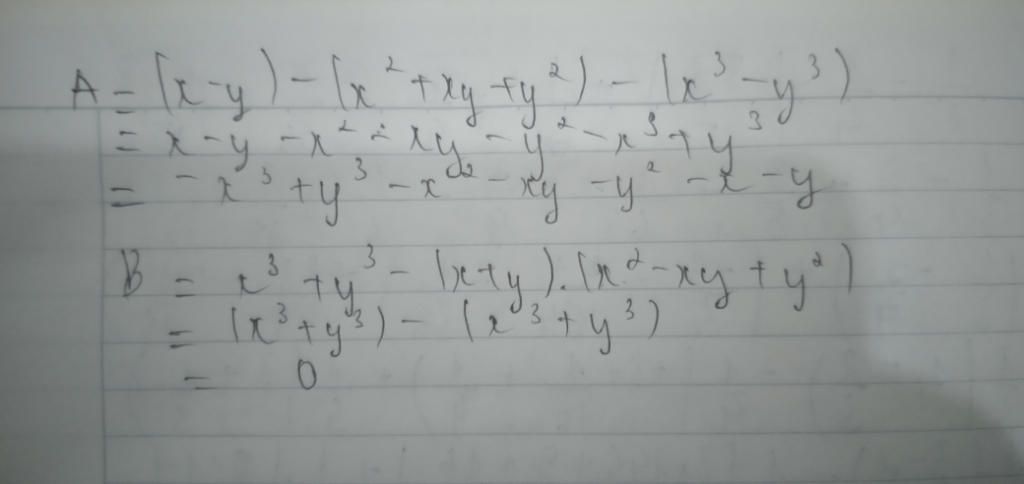 A = (x-y) - (x² + xy + y²) - (x³ - y³)
= x - y - x² - xy - y² - x³ + y³
= - x³ + y³ - x² - xy - y² - x - y
B = x³ + y³ - (x+y).(x² - xy + y²)
= (x³ + y³) - (x³ + y³)
= 0